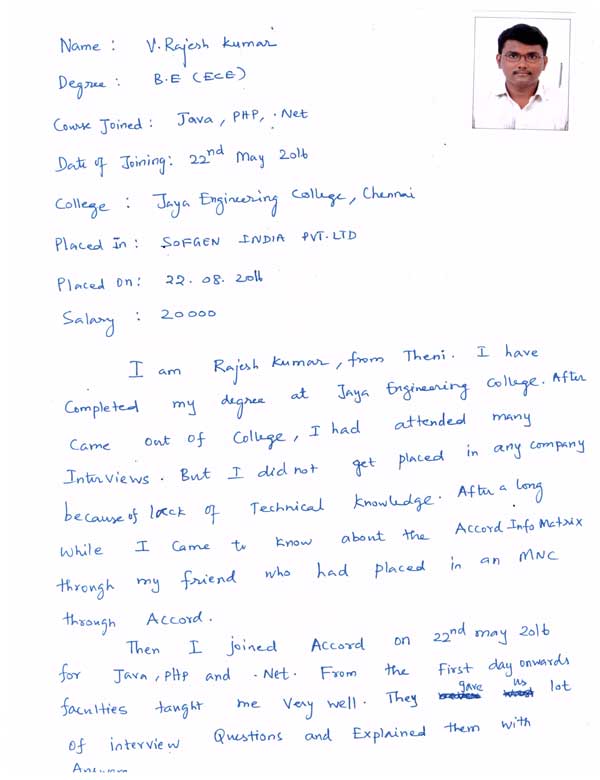 Name : V. Rajesh Kumar
Degree : B.E (ECE)
Course Joined : Java, PHP, .Net
Date of Joining : 22nd May 2016
College : Jaya Engineering College, Chennai
Placed In : SOFGEN INDIA PVT.LTD
Placed on : 22.08.2016
Salary : 20000
I am Rajesh Kumar, from Theni. I have
Completed my degree at Jaya Engineering College. After
Came out of College, I had attended many
Interviews. But I did not get placed in any company
because of lack of Technical Knowledge. After a long
while I Came to know about the Accord Info Matrix
through my friend who had placed in an MNC
through Accord.
Then I joined Accord on 22nd may 2016
for Java, PHP and .Net. From the first day onwards
faculties taught me Very well. They gave us lot
of interview Questions and Explained them with